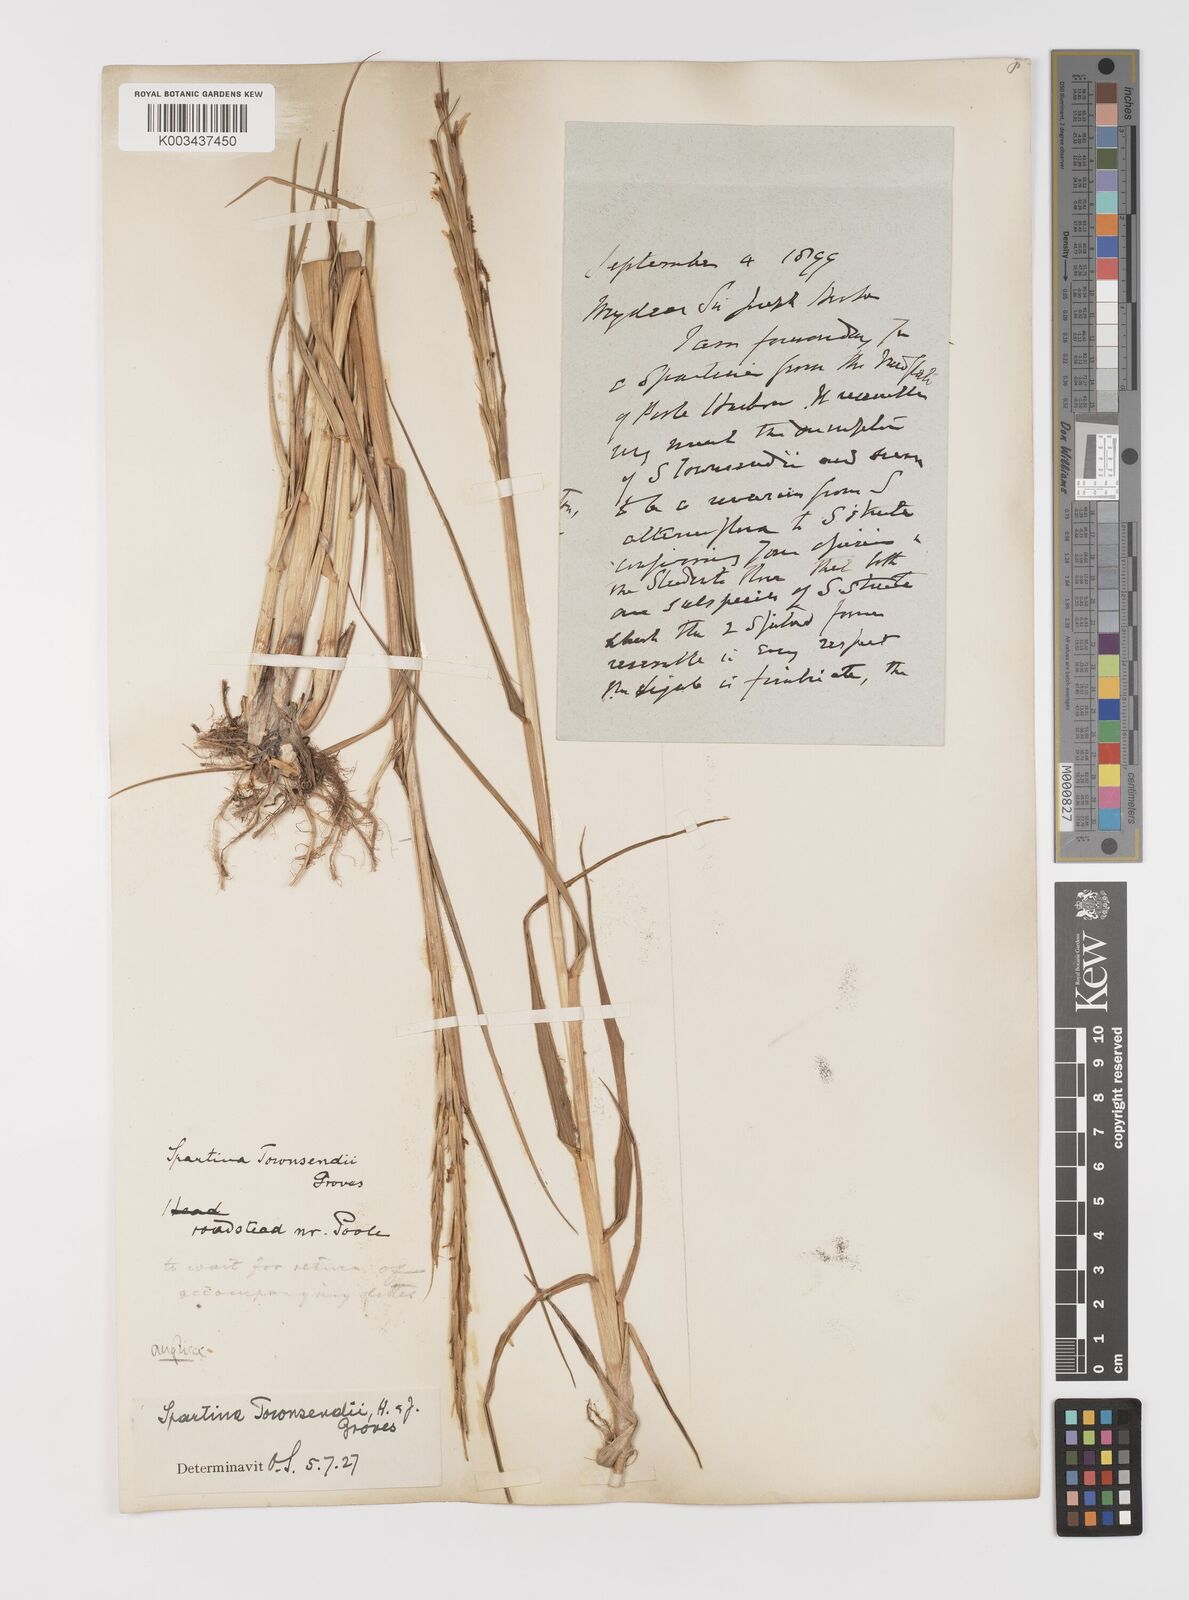 ROYAL BOTANIC GARDENS KEW
K003437450
September 4 1899
My dear Sir Joseph
I am forwarding
a Spartina from the Mudflats
of Poole Harbour. It resembles
very much the description
of S Townsendii and seems
to be a reversion from S
alterniflora to S stricta
confirming your opinion
the Students Flora that both
are subspecies of S. stricta
which the 2 forms
resemble in every respect
the ligule is fimbriate, the
Spartina Townsendii
Groves
Head
roadstead nr. Poole
to wait for return of
accompanying letter
anglica
Spartina Townsendii, H. & J.
Groves
Determinavit O.S. 5.7.27
inches
centimeters
Don Williams
M000827
Kew
Royal Botanic Gardens
0 1 2 3 4 5 6 7 8 9 10
cm
copyright reserved